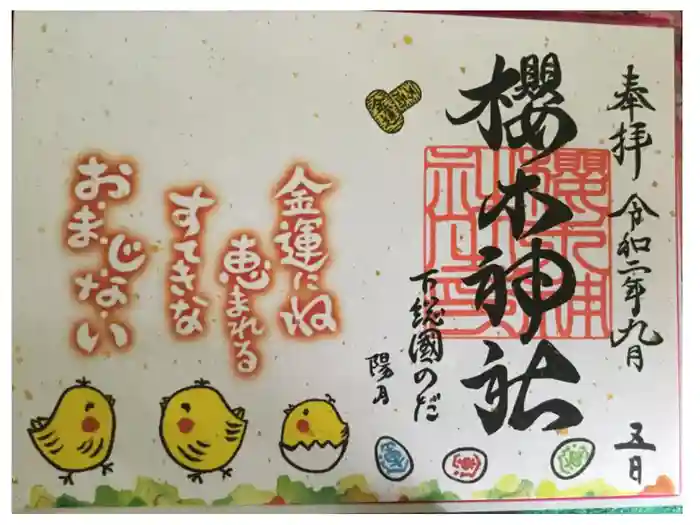 奉拝 令和二年九月 五日
櫻木神社
下総國のだ
陽月
金運にね
恵まれる
すてきな
おまじない